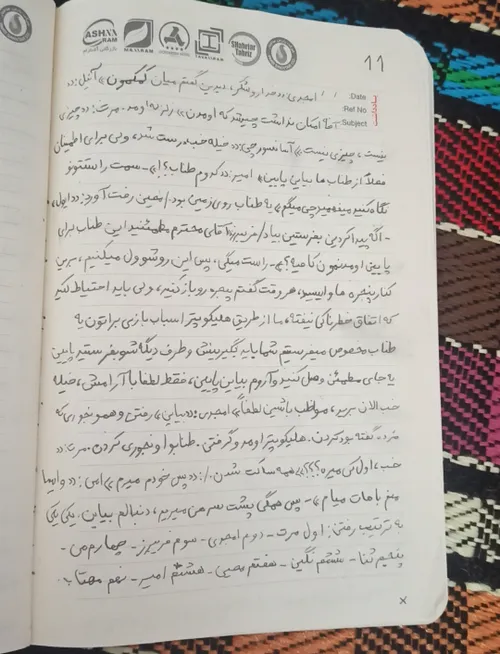 ASHNA
RAM
MAJIRAM
TAKBIRAM
Shahriar
Tabriz
11
Date:
Ref No:
Subject:
یادداشت
امجدی: در حد از و شکر، دیدین گفتم میان کمکمون» آنیل:
آقا امکان نداشت چیشد که اومدن» زنه نه اومد. مرت: چیزی
نیست، چیزی نیست» آسانسورچی: خیله خب درست شد، ولی برای اطمینان
فعلاً از طناب ها بیای پایین» امیر: کدوم طناب؟!» - سمت راستتونو
نگاه کنید میفهمید چی میگم» یه طناب روی زمین بود/ معین رفت آورد: اول،
- اگه پیدا کردین بفرستین بیاد/ فریبرز: آقای محترم مطمئنید این طناب برای
پایین اومدنمون کافیه؟» - راست میگی، پس این روشو ول میکنیم، برین
کنار پنجره ها وایسید، هر وقت گفتم پنجره رو باز کنید، ولی باید احتیاط کنید
که اتفاق خطرناکی نیفته، ما از طریق هلیکوپتر اسباب بازی براتون یه
طناب مخصوص میفرستم شما باید بگیرینش و طرف دیگه شو بفرستید پایین
یه جای مطمئن وصل کنید و آروم بیاین پایین، فقط لطفا با آرامش، خیله
خب الان میرید، مواظب باشین لطفاً» امجدی: بیاین» رفتن و همو نجوری که
مرد گفته بود کردن. هلیکوپتر اومد و گرفتن. طنابو اونجوری کردن. مرت:
خب، اول کی میره؟؟؟» همه ساکت شدن./: پس خودم میرم» امی: وایسا
منم باهات میام» - پس همگی پشت سر من میریم، دنبالم بیاین. یکی یکی
به ترتیب رفتن: اول مرت - دوم امجدی - سوم فریبرز - چهارم می -
پنجم ثنا - ششم نگین - هفتم معین - هشتم امیر - نهم مهتاب.
×